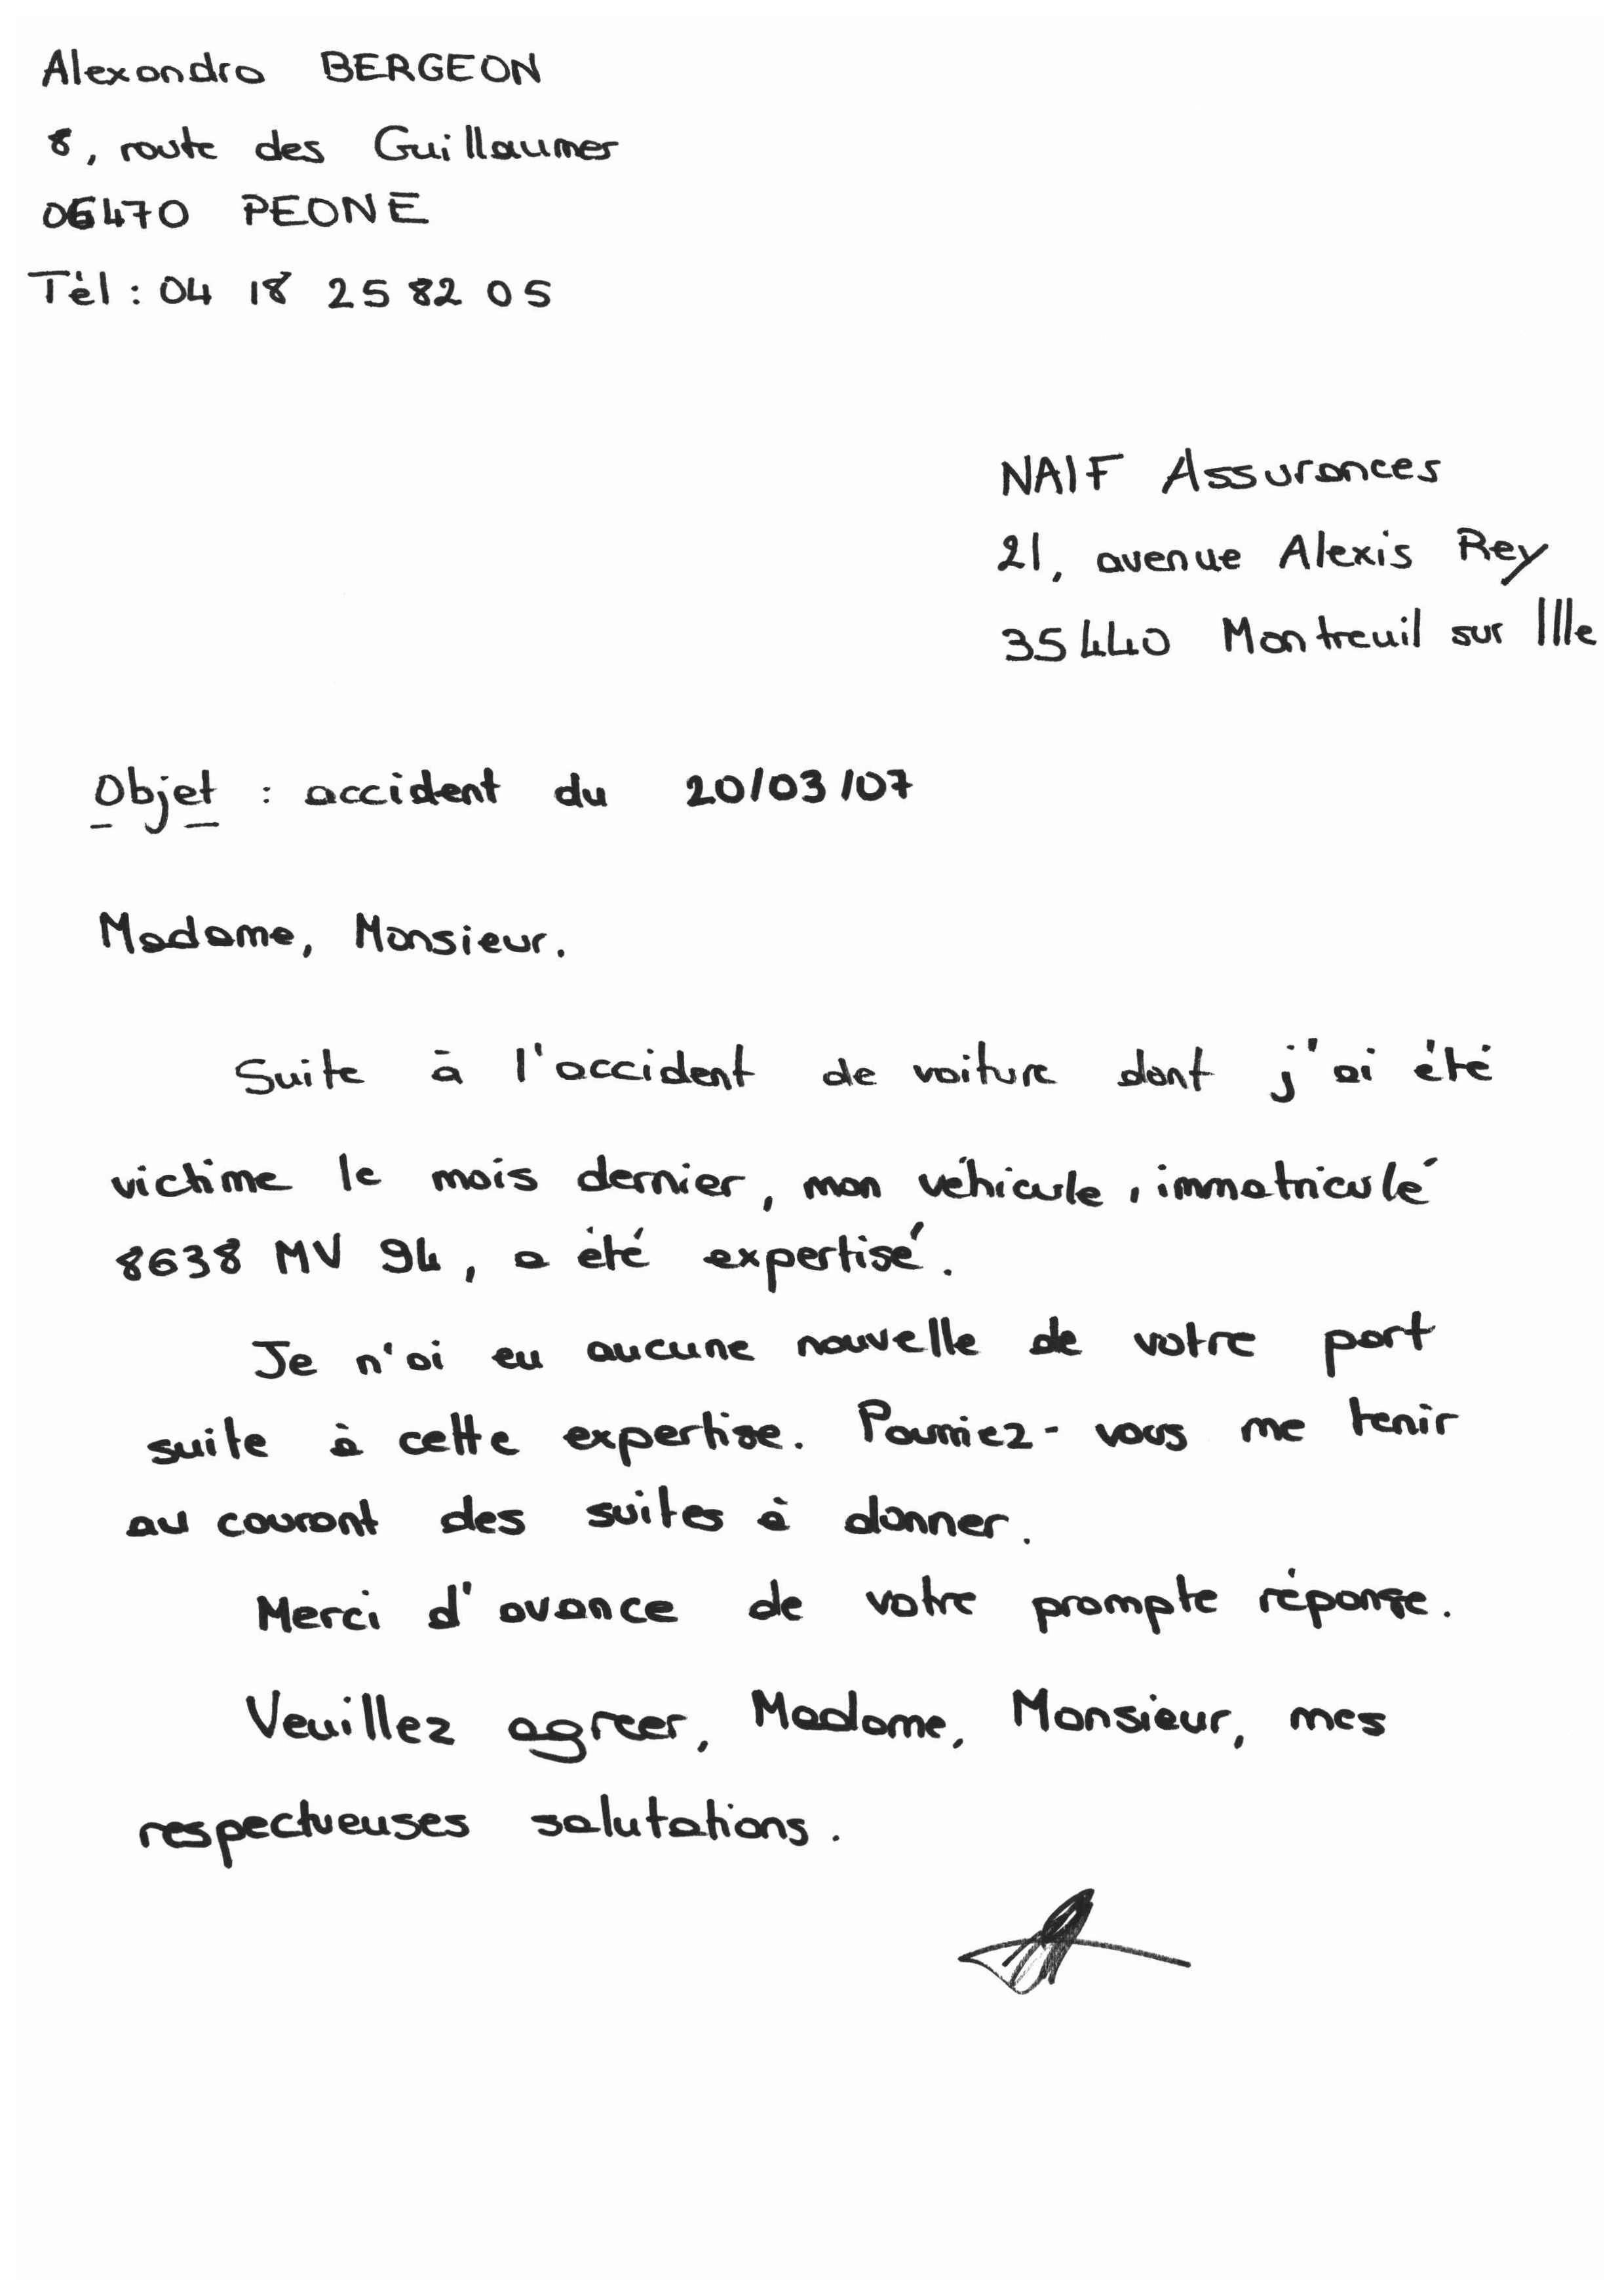 Alexandra BERGEON
8, route des Guillaumes
06470 PEONE
Tél : 04 18 25 82 05
NAIF Assurances
21, avenue Alexis Rey
35440 Montreuil sur Ille
Objet : accident du 20/03/07
Madame, Monsieur.
Suite à l'accident de voiture dont j'ai été
victime le mois dernier, mon véhicule, immatriculé
8638 MV 94, a été expertisé.
Je n'ai eu aucune nouvelle de votre part
suite à cette expertise. Pourriez-vous me tenir
au courant des suites à donner.
Merci d'avance de votre prompte réponse.
Veuillez agreer, Madame, Monsieur, mes
respectueuses salutations.